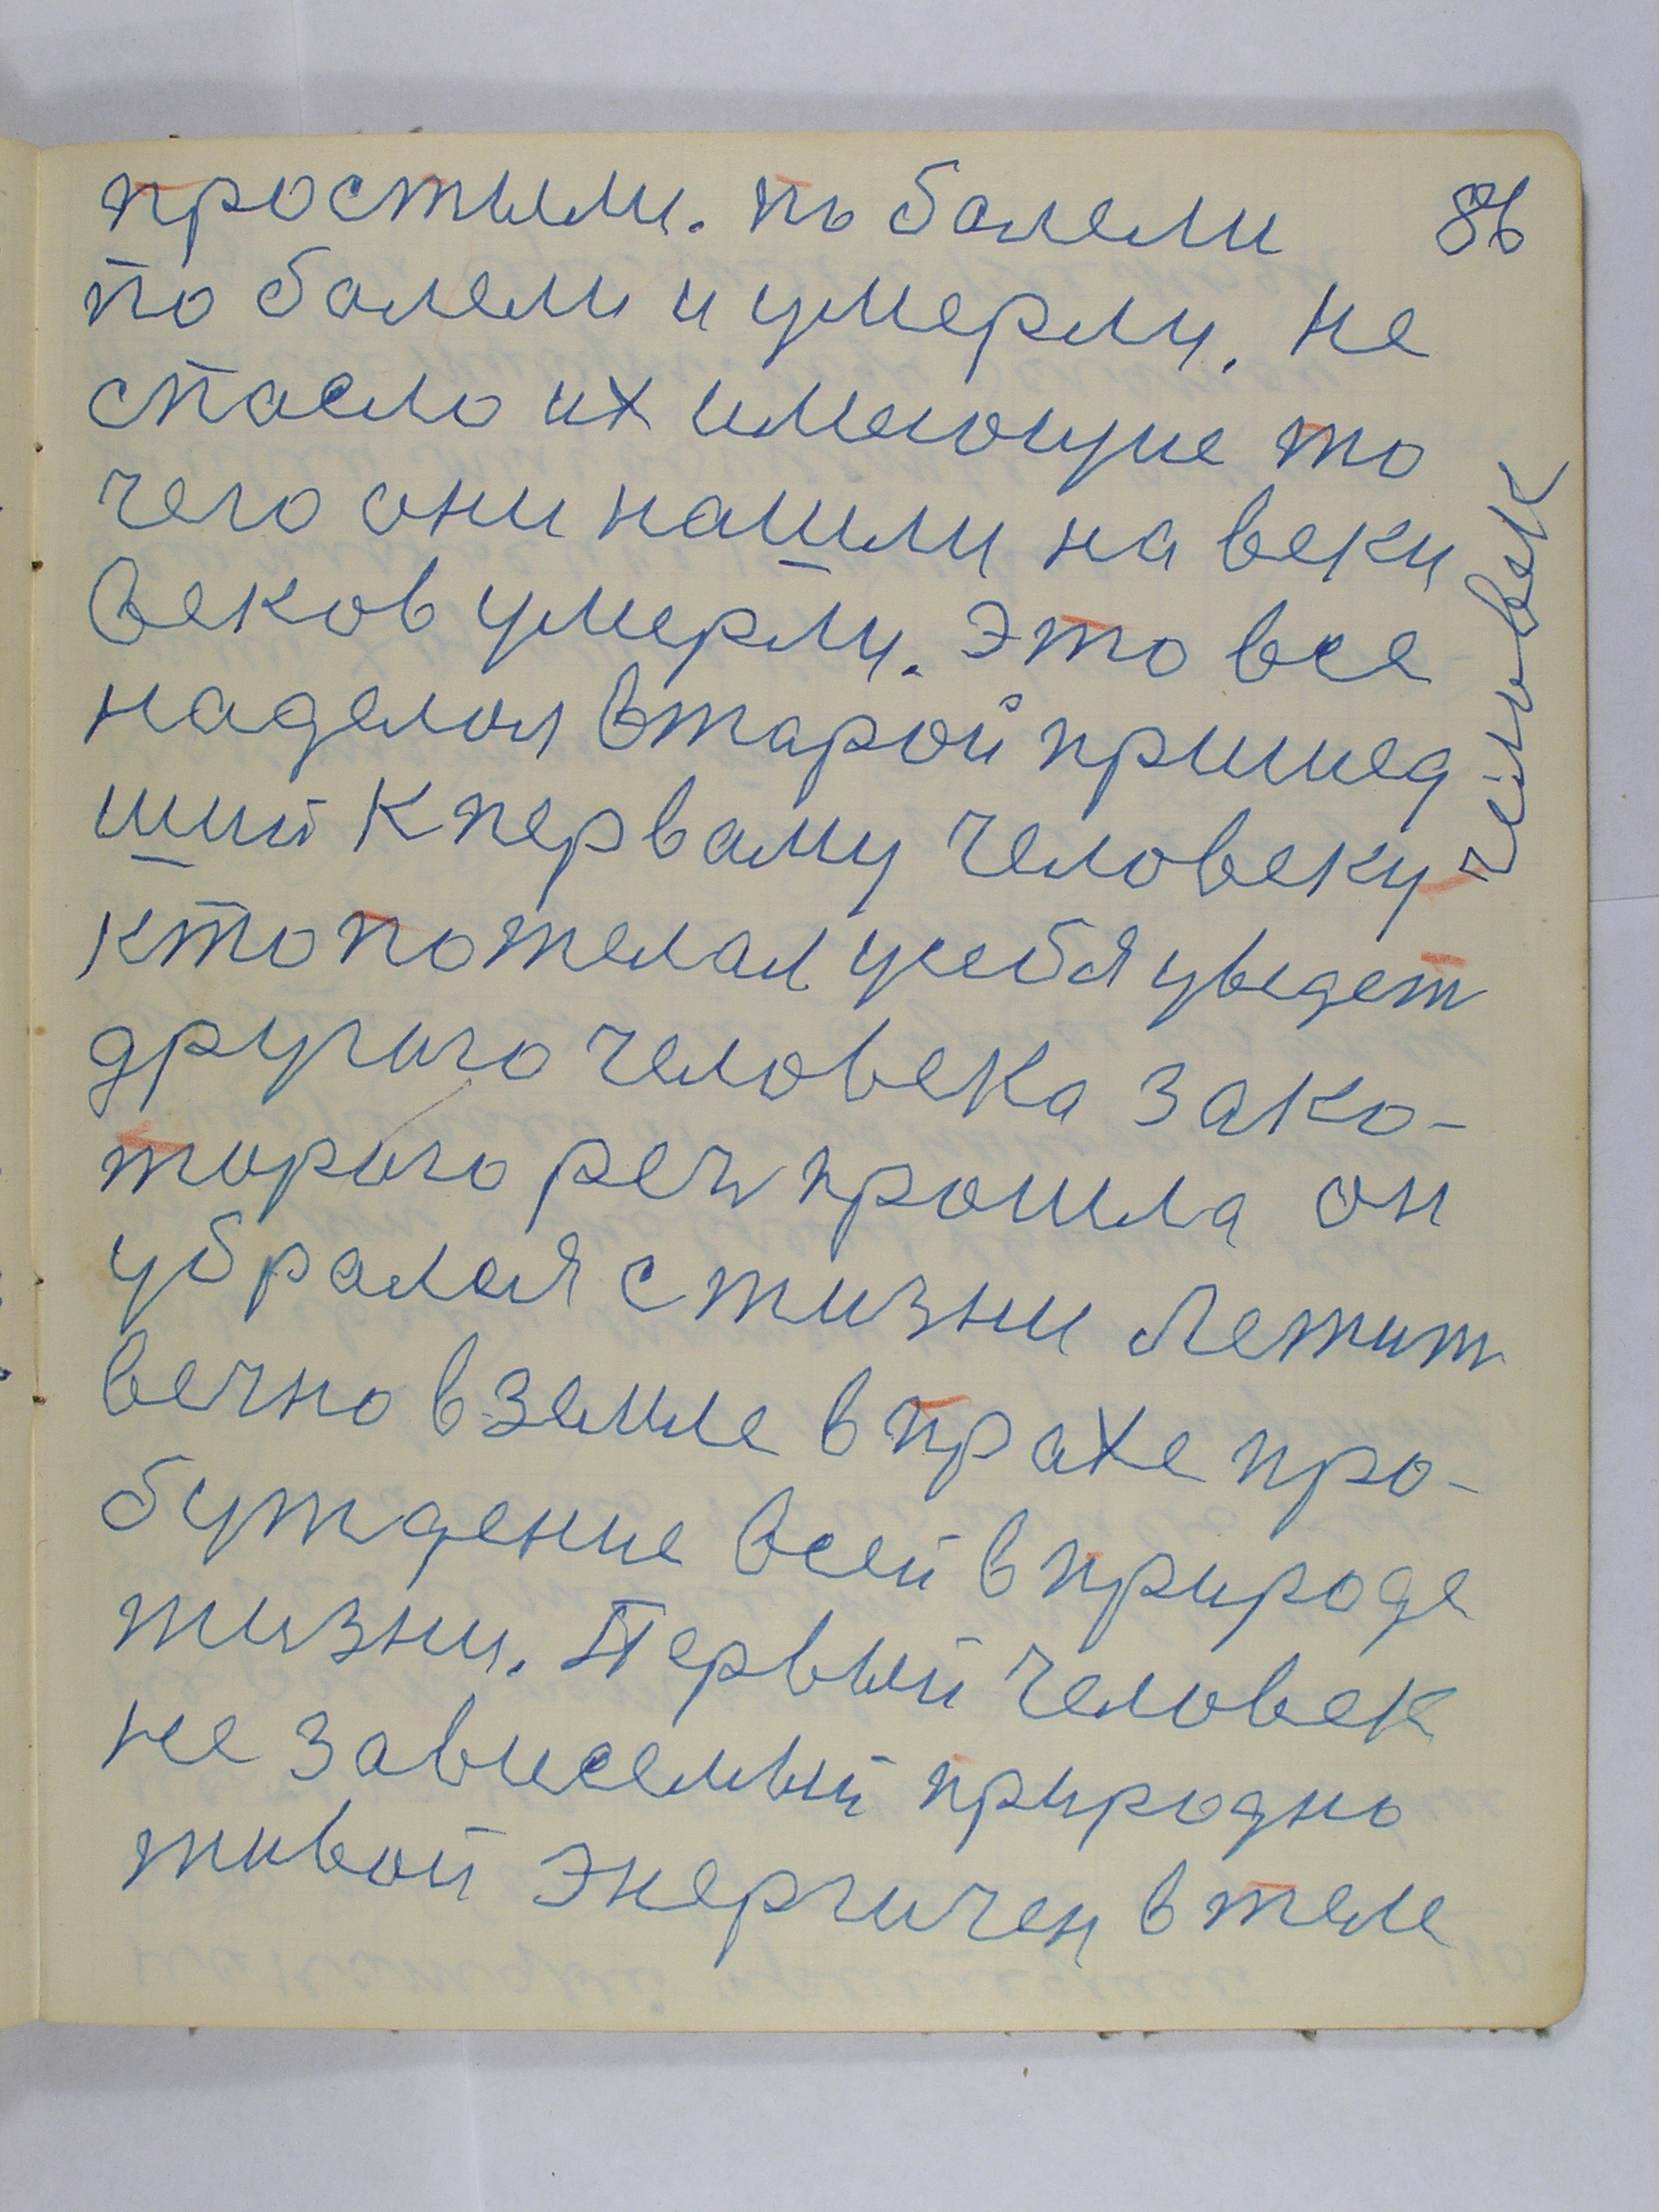 86
простыли. по болели
по болели и умерли. не
спасло их имеющие то
чего они нашли на веки
веков умерли. Это все
наделол второй пришед
ший к первому человеку
человек
кто пожелал у себя уведет
другого человека за ко-
торого реч прошла он
убрался с жизни Лежит
вечно в земле в прахе про-
буждение всей в природе
жизни. Первый человек
не зависемый природно
живой энергичен в теле